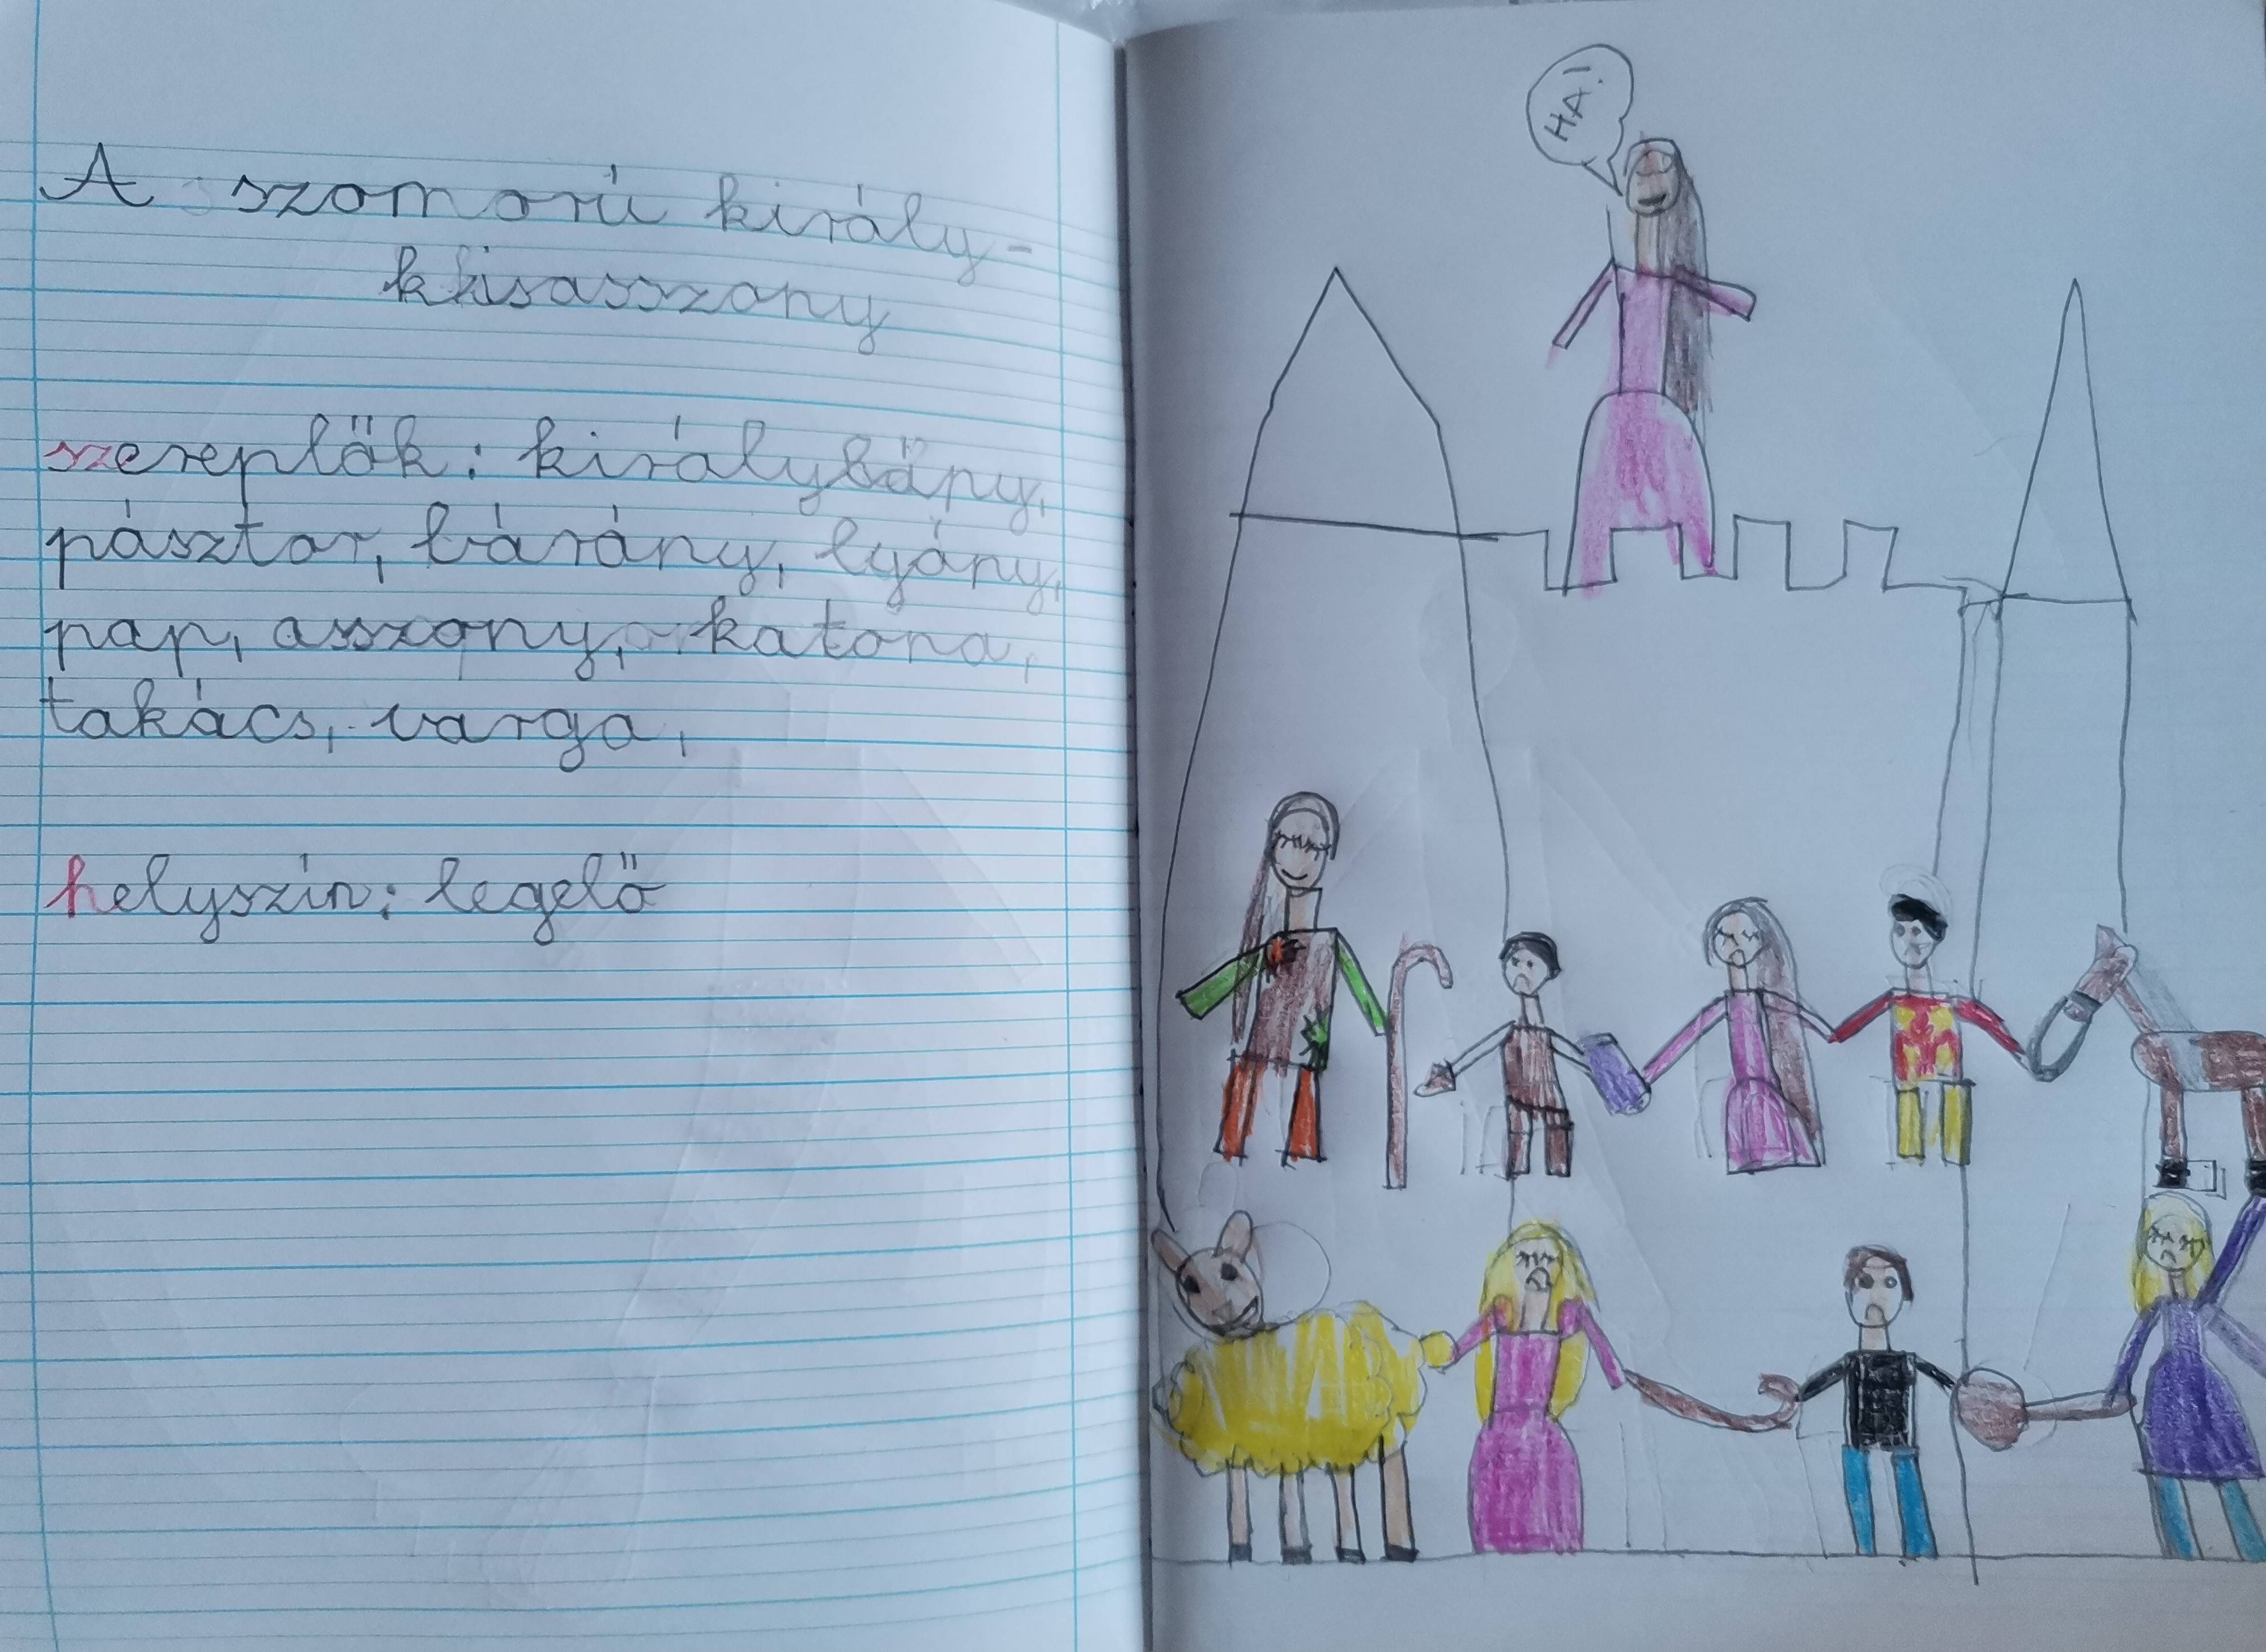 A szomorú király-
kkisasszony
szereplők: királylány,
pásztor, bárány, lyány,
pap, asszony, katona,
takács, varga,
helyszín: legelő
HA!